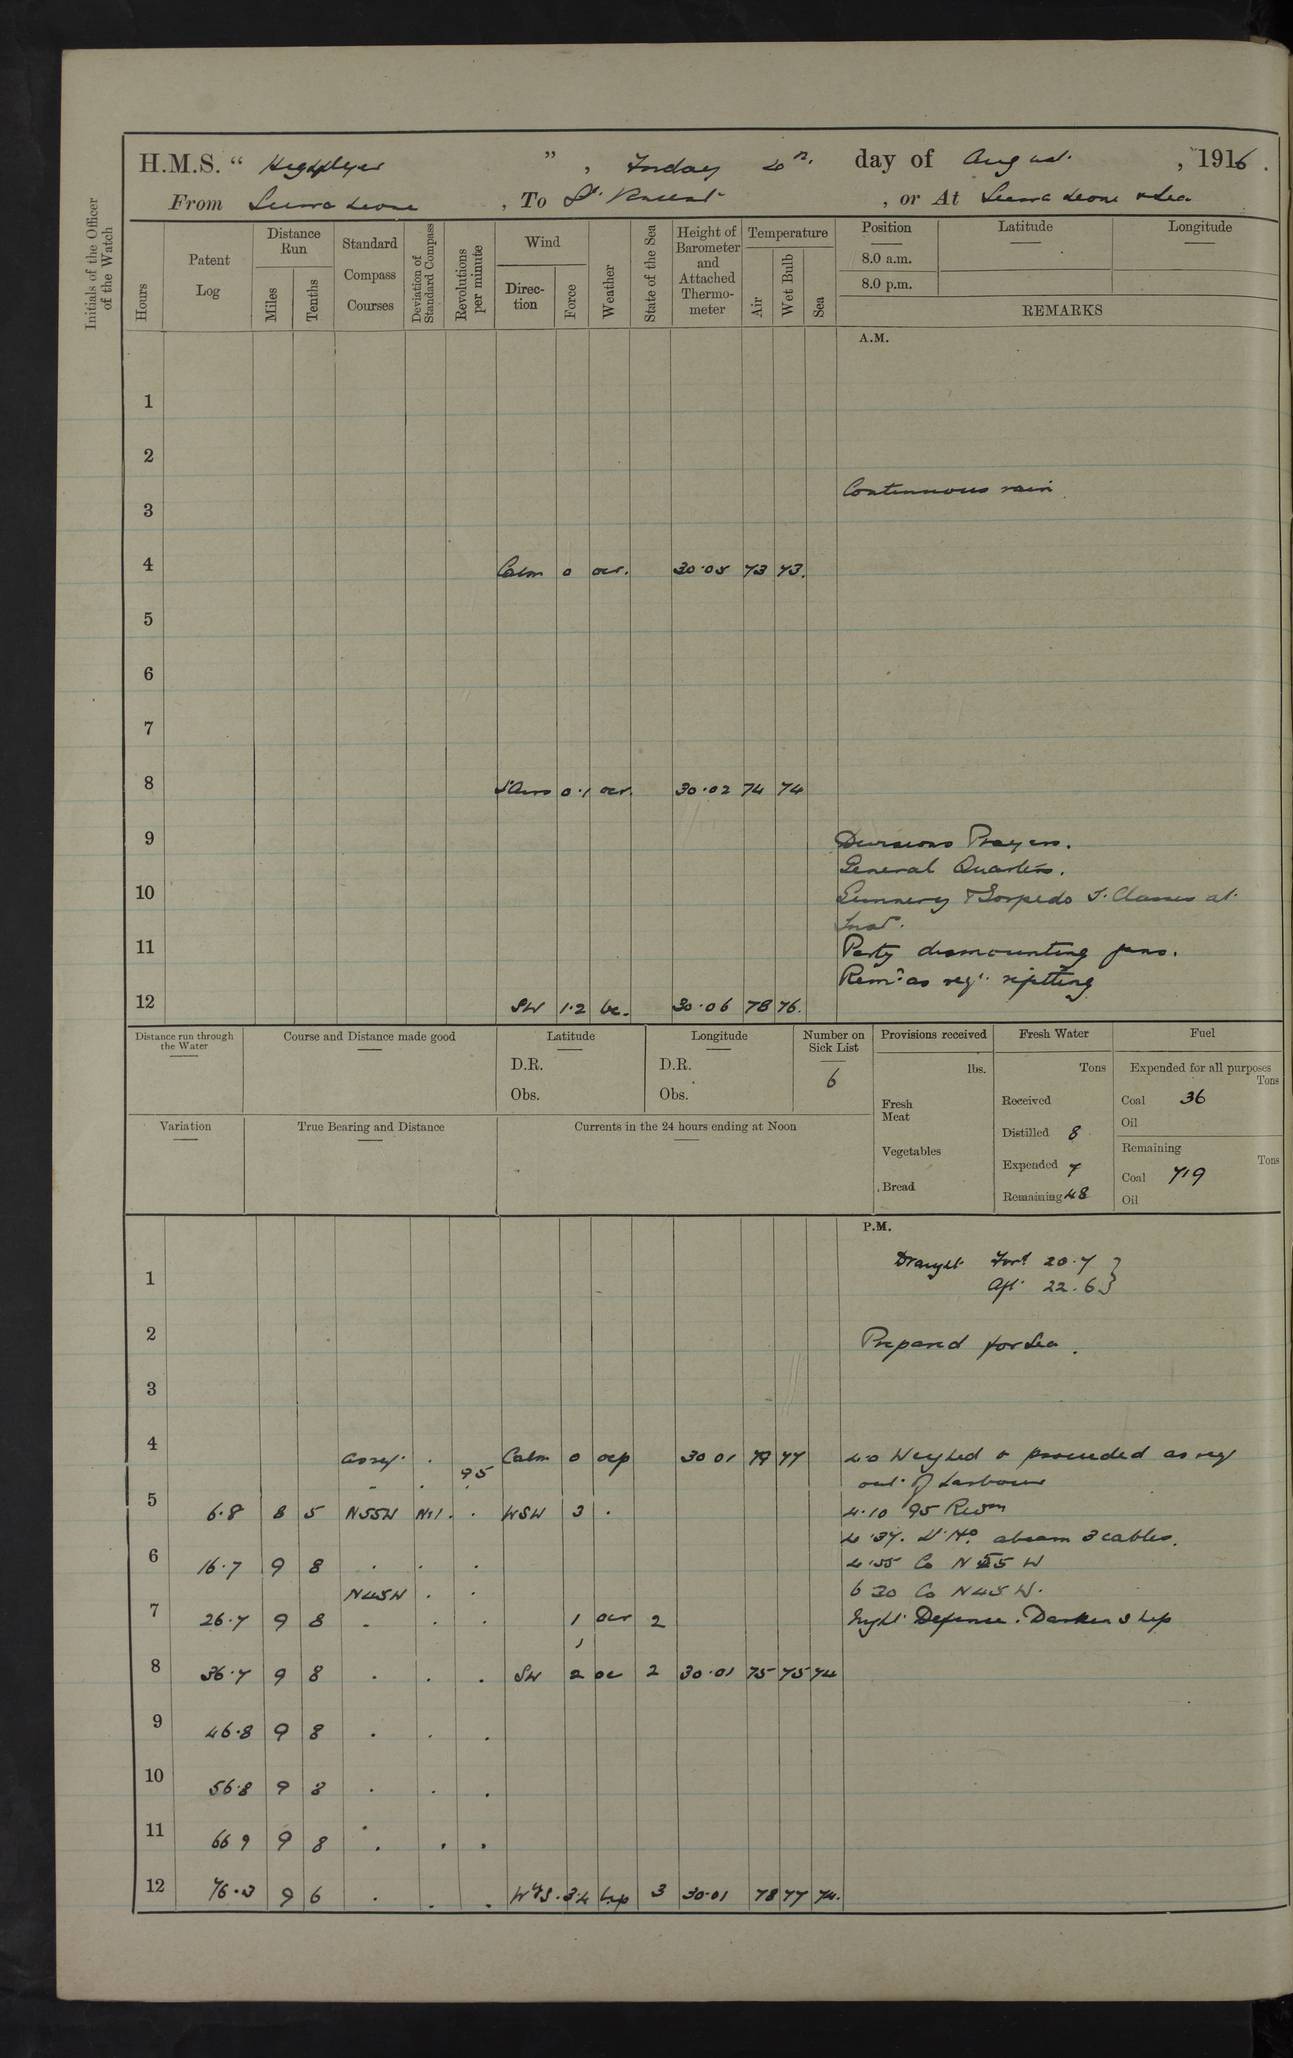 H.M.S. “ Highflyer ” , Friday 4th. day of August. , 1916 .
From Sierra Leone , To St. Vincent , or At Sierra Leone & Sea
Initials of the Officer of the Watch
Hours
Patent Log
Distance Run
Miles
Tenths
Standard Compass Courses
Deviation of Standard Compass
Revolutions per minute
Wind
Direc-tion
Force
Weather
State of the Sea
Height of Barometer and Attached Thermo-meter
Temperature
Air
Wet Bulb
Sea
Position
Latitude
Longitude
8.0 a.m.
8.0 p.m.
REMARKS
A.M.
1
2
Continuous rain
3
4 Calm 0 ocr. 30·05 73 73.
5
6
7
8 S'Airs 0·1 ocr. 30·02 74 74
9 Divisions Prayers.
General Quarters.
10 Gunnery & Torpedo T. Classes at
Inst.
11 Party dismounting guns.
Remr. as reqt. refitting
12 SW 1·2 bc. 30·06 78 76.
Distance run through the Water
Course and Distance made good
Latitude
D.R.
Obs.
Longitude
D.R.
Obs.
Number on Sick List
6
Provisions received
lbs.
Fresh Meat
Vegetables
Bread
Fresh Water
Tons
Received
Distilled 8
Expended 7
Remaining 48
Fuel
Expended for all purposes
Tons
Coal 36
Oil
Remaining
Tons
Coal 719
Oil
Variation
True Bearing and Distance
Currents in the 24 hours ending at Noon
P.M.
Draught Ford 20·7 }
1 Aft 22·6 }
2 Prepared for Sea.
3
4 as req. · 95 Calm 0 ocp 30 01 79 77 4·0 Weighed & proceeded as req
out of harbour
5 6·8 8 5 N55W Nil. · WSW 3 · 4·10 95 Revns
4·37. Lt. Ho. abeam 3 cables.
6 16·7 9 8 · · · 4·55 Co N 55 W
N45W · · 6 30 Co N45 W.
7 26·7 9 8 · · · 1 ocr 2 Night Defence. Darken Ship
8 36·7 9 8 · · · SW 2 oc 2 30·01 75 75 74
9 46·8 9 8 · · ·
10 56·8 9 8 · · ·
11 66 9 9 8 · · ·
12 76·3 9 6 · · · W'S. 3·4 30·01 78 77 74.